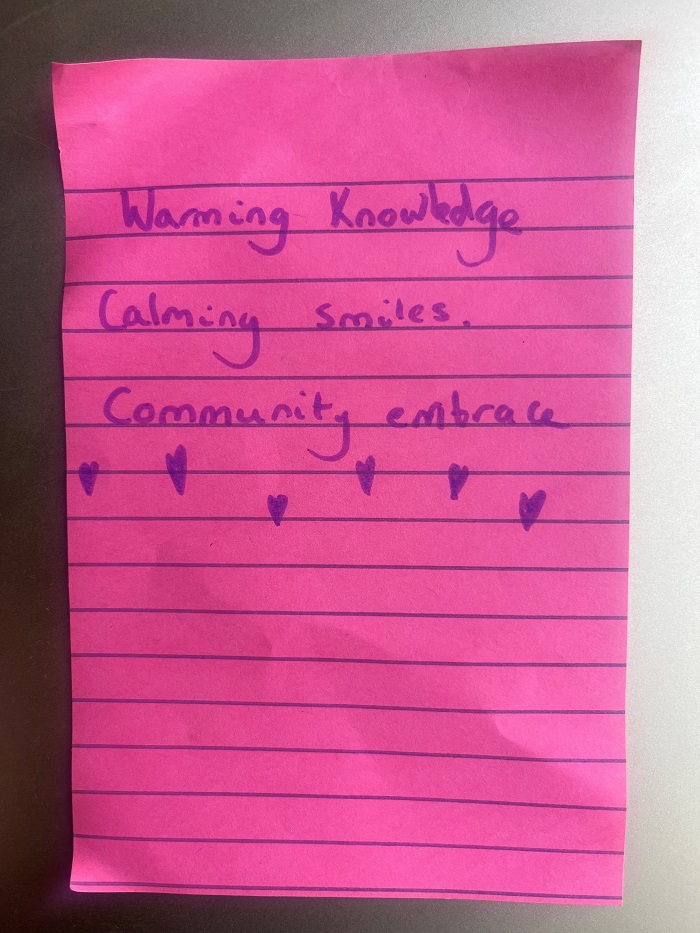 Warming Knowledge
Calming smiles.
Community embrace